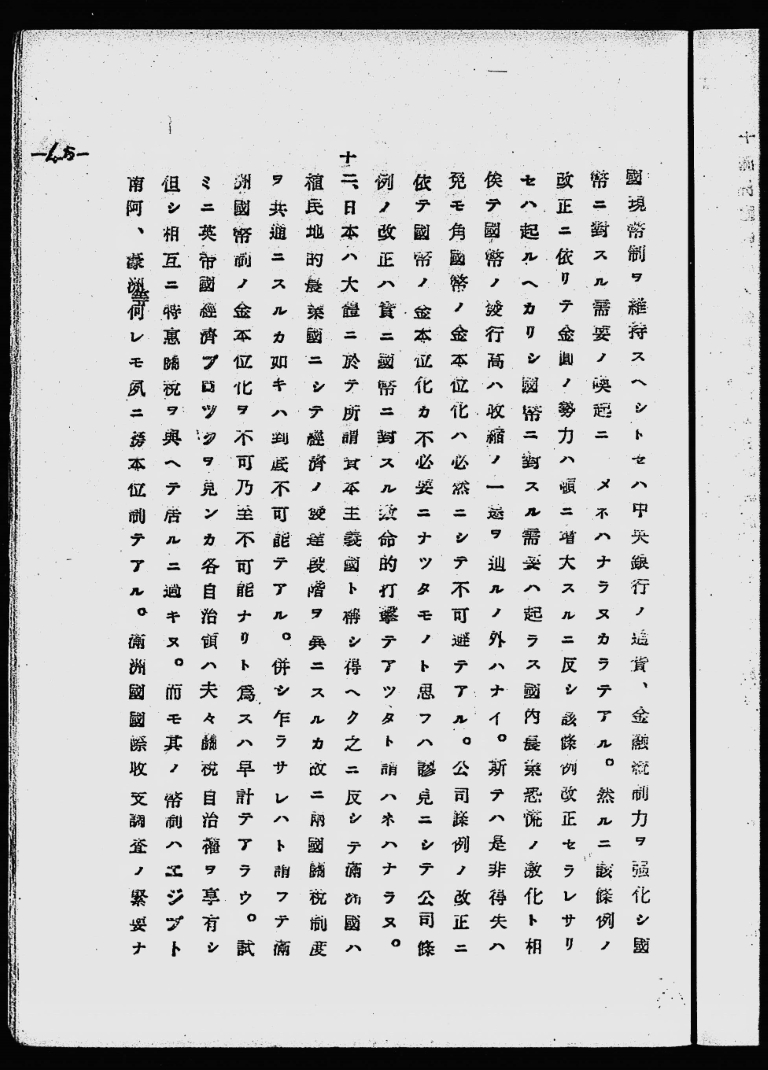 國現幣制ヲ維持スヘシトセハ中央銀行ノ通貨、金融統制力ヲ强化シ國
幣ニ對スル需要ノ喚起ニ メネハナラヌカラテアル。然ルニ該條例ノ
改正ニ依リテ金圓ノ勢力ハ頓ニ增大スルニ反シ該條例改正セラレサリ
セハ起ルヘカリシ國幣ニ對スル需要ハ起ラス國內農業恐慌ノ激化ト相
俟テ國幣ノ發行高ハ收縮ノ一途ヲ辿ルノ外ハナイ。斯テハ是非得失ハ
兎モ角國幣ノ金本位化ハ必然ニシテ不可避テアル。公司條例ノ改正ニ
依テ國幣ノ金本位化カ不必要ニナツタモノト思フハ謬見ニシテ公司條
例ノ改正ハ實ニ國幣ニ對スル致命的打擊テアツタト謂ハネハナラヌ。
十二、日本ハ大體ニ於テ所謂資本主義國ト稱シ得ヘク之ニ反シテ滿洲國ハ
植民地的農業國ニシテ經濟ノ發達段階ヲ異ニスルカ故ニ兩國關稅制度
ヲ共通ニスルカ如キハ到底不可能テアル。併シ乍ラサレハト謂フテ滿
洲國幣制ノ金本位化ヲ不可乃至不可能ナリト爲スハ早計テアラウ。試
ミニ英帝國經濟ブロツクヲ見ンカ各自治領ハ夫々關稅自治權ヲ享有シ
但シ相互ニ特惠關稅ヲ與ヘテ居ルニ過キヌ。而モ其ノ幣制ハエジプト
南阿、濠洲等何レモ夙ニ磅本位制テアル。滿洲國國際收支調査ノ緊要ナ
—45—